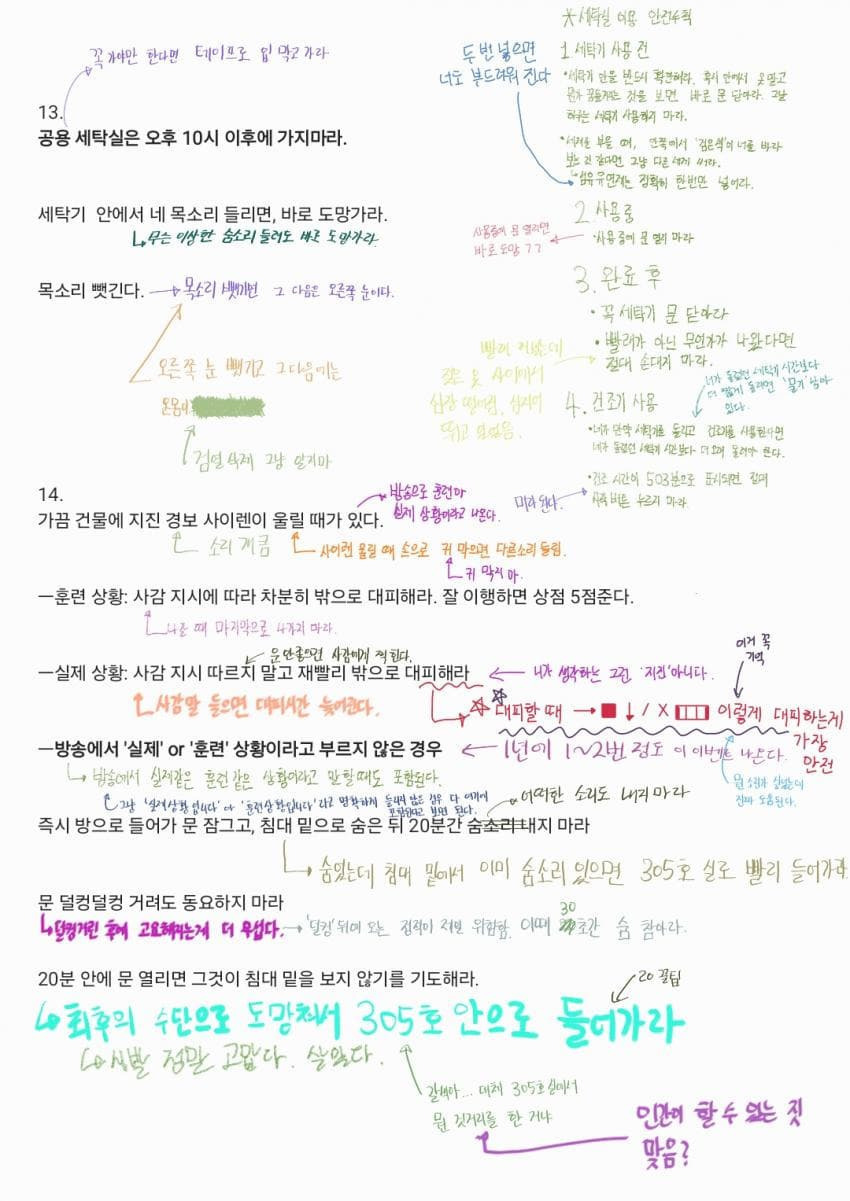 꼭 가야만 한다면 테이프로 입 막고 가라
13.
공용 세탁실은 오후 10시 이후에 가지마라.
세탁기 안에서 네 목소리 들리면, 바로 도망가라.
↳ 무슨 이상한 숨소리 들려도 바로 도망가라
목소리 뺏긴다. → 목소리 뺏기면 그 다음은 오른쪽 눈이다.
오른쪽 눈 뺏기고 그 다음에는
온몸이
검열 삭제 그냥 알지마
※ 세탁실 이용 안전수칙
두 번 넣으면
너도 부드러워 진다
1. 세탁기 사용 전
• 세탁기 안을 반드시 확인해라. 혹시 안에서 옷 말고
뭔가 꿈틀거리는 것을 보면 바로 문 닫아라. 그날
하루는 세탁기 사용하지 마라.
• 세제를 부을 때, 안쪽에서 '검은색'이 너를 바라
보는 것 같다면 그냥 다른 세제 써라.
• 섬유유연제는 정확히 한번만 넣어라.
2. 사용 중
• 사용 중에 문 열지 마라
사용중에 문 열리면
바로 도망 ㄱㄱ
3. 완료 후
• 꼭 세탁기 문 닫아라
• 빨래가 아닌 무언가가 나왔다면
절대 손대지 마라.
빨래 꺼냈는데
젖은 옷 사이에서
심장 떨어짐. 심지어
뛰고 있었음.
4. 건조기 사용
너가 돌렸던 세탁기 시간보다
더 짧게 돌리면 '물기' 남아
있다.
• 너가 만약 세탁기를 돌리고 건조기를 사용한다면
너가 돌렸던 세탁기 시간보다 더 오래 돌려야 한다.
• 건조 시간이 503분으로 표시되면 절대
시작 버튼 누르지 마라
미라 된다.
14.
가끔 건물에 지진 경보 사이렌이 울릴 때가 있다.
방송으로 훈련이나
실제 상황이라고 나온다.
소리 개큼
사이렌 울릴 때 손으로 귀 막으면 다른소리 들림.
귀 막지 마.
—훈련 상황: 사감 지시에 따라 차분히 밖으로 대피해라. 잘 이행하면 상점 5점준다.
나올 때 마지막으로 나가지 마라.
문 안 좋으면 사감에게 찍힌다.
—실제 상황: 사감 지시 따르지 말고 재빨리 밖으로 대피해라
← 너가 생각하는 그런 '지진' 아니다.
사감말 들으면 대피시간 늦어진다.
이거 꼭
기억
☆☆ 대피할 때 → ■ ↓ / X ▥ 이렇게 대피하는게
가장
안전
—방송에서 '실제' or '훈련' 상황이라고 부르지 않은 경우
← 1년에 1~2번 정도 이 이벤트 나온다.
↳ 방송에서 실제같은 훈련같은 상황이라고 말할 때도 포함된다.
그냥 '실제상황입니다' or '훈련상황입니다' 라고 명확하게 들리지 않은 경우 다 여기에
포함된다고 보면 된다.
진짜 도움된다.
어떠한 소리도 내지 마라
즉시 방으로 들어가 문 잠그고, 침대 밑으로 숨은 뒤 20분간 숨소리 내지 마라
숨었는데 침대 밑에서 이미 숨소리 있으면 305호 실로 빨리 들어가라
문 덜컹덜컹 거려도 동요하지 마라
↳ 덜컹거린 후에 고요해지는게 더 무섭다. → '덜컹' 뒤에 오는 정적이 제일 위험함. 이때 30초간 숨 참아라.
20분 안에 문 열리면 그것이 침대 밑을 보지 않기를 기도해라.
20 꿀팁
↳ 최후의 수단으로 도망쳐서 305호 안으로 들어가라
↳ 시발 정말 고맙다. 살았다.
갈색아... 대체 305호실에서
뭔 짓거리를 한 거냐
인간이 할 수 있는 짓
맞음?